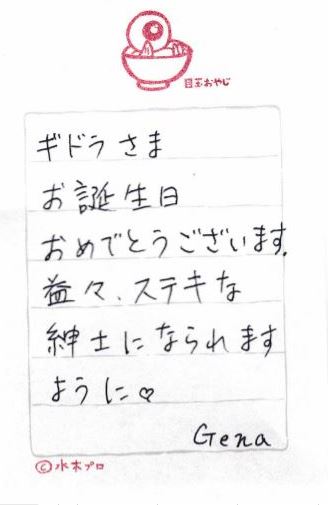 目玉おやじ
ギドラさま
お誕生日
おめでとうございます。
益々、ステキな
紳士になられます
ように♡
Gena
©水木プロ